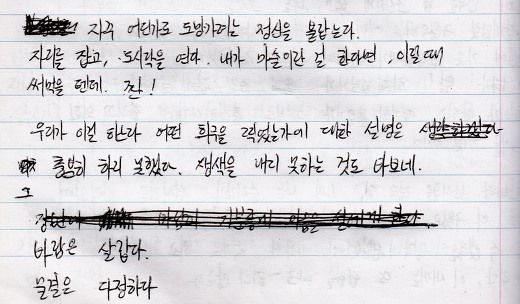 자꾸 어딘가로 도망가려는 정신을 붙잡는다.
자리를 잡고, 도시락을 연다. 내가 마술이란 걸 한다면, 이럴 때
써먹을 텐데. 짠!
우리가 이걸 하느라 어떤 희극을 겪었는가에 대한 설명은
충분히 하지 못했다. 생색을 내지 못하는 것도 바보네.
그
바람은 살갑다.
물결은 다정하다